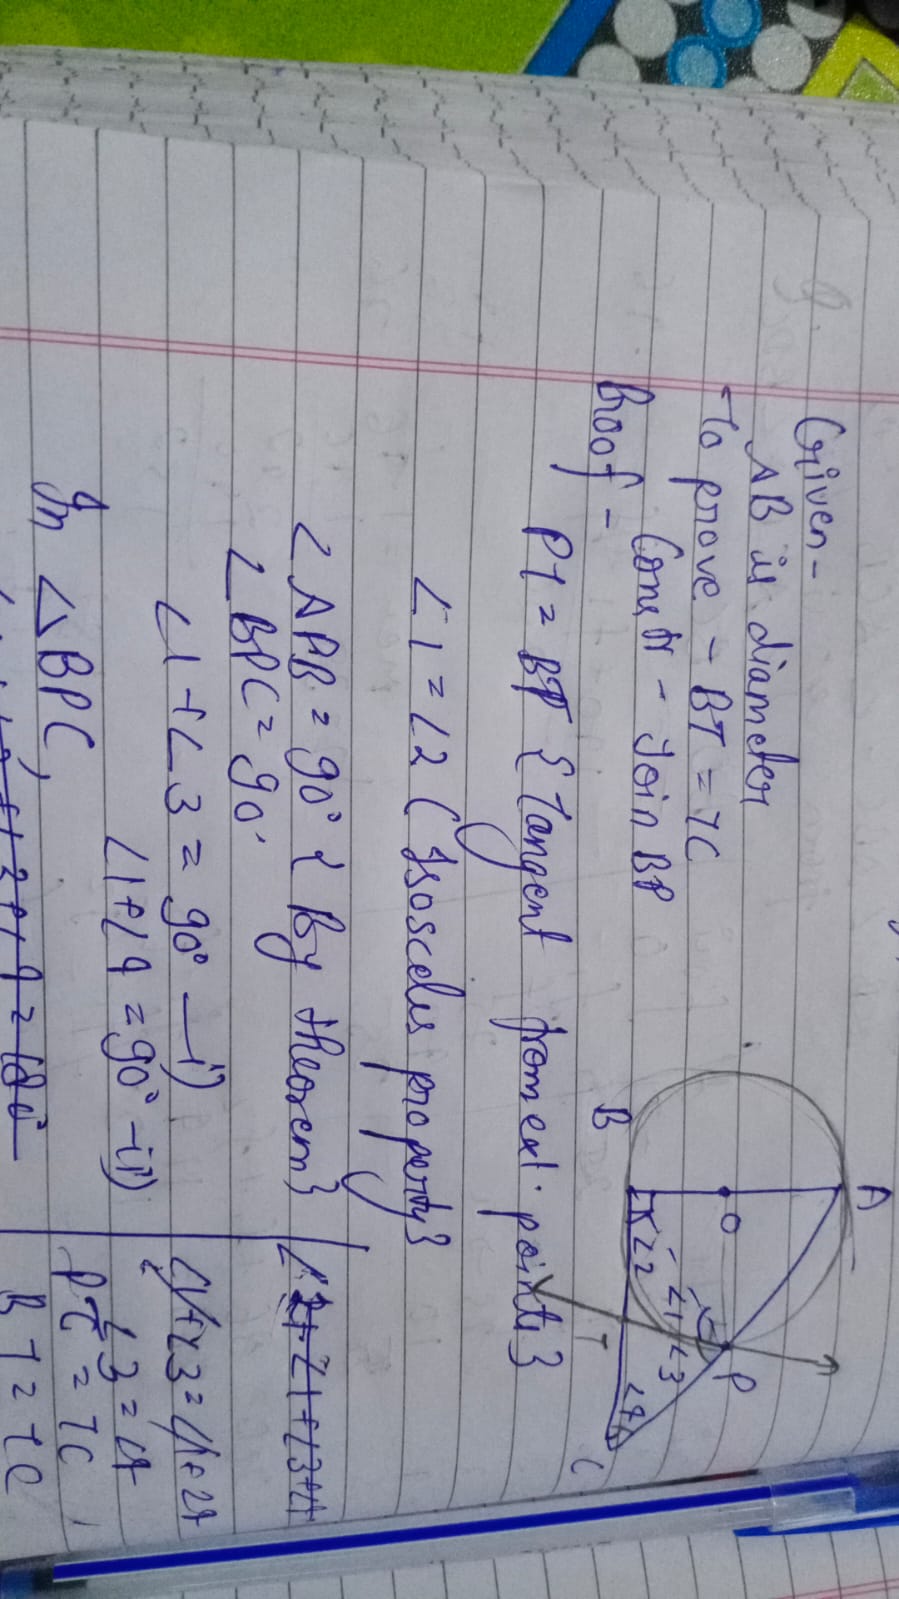 Given -
AB is diameter
To prove - BT = TC
Constr - Join BP
Proof -
PT = BT {Tangent from ext. points}
∠1 = ∠2 (Isosceles property}
∠APB = 90° { By theorem}
∠BPC = 90°
∠1 + ∠3 = 90° — i)
∠1 + ∠4 = 90° — ii)
In △BPC,
∠1 + ∠3 = ∠1 + ∠4
∠3 = ∠4
PT = TC
BT = TC
A
O
B
P
T
C
∠2
∠1
∠3
∠4